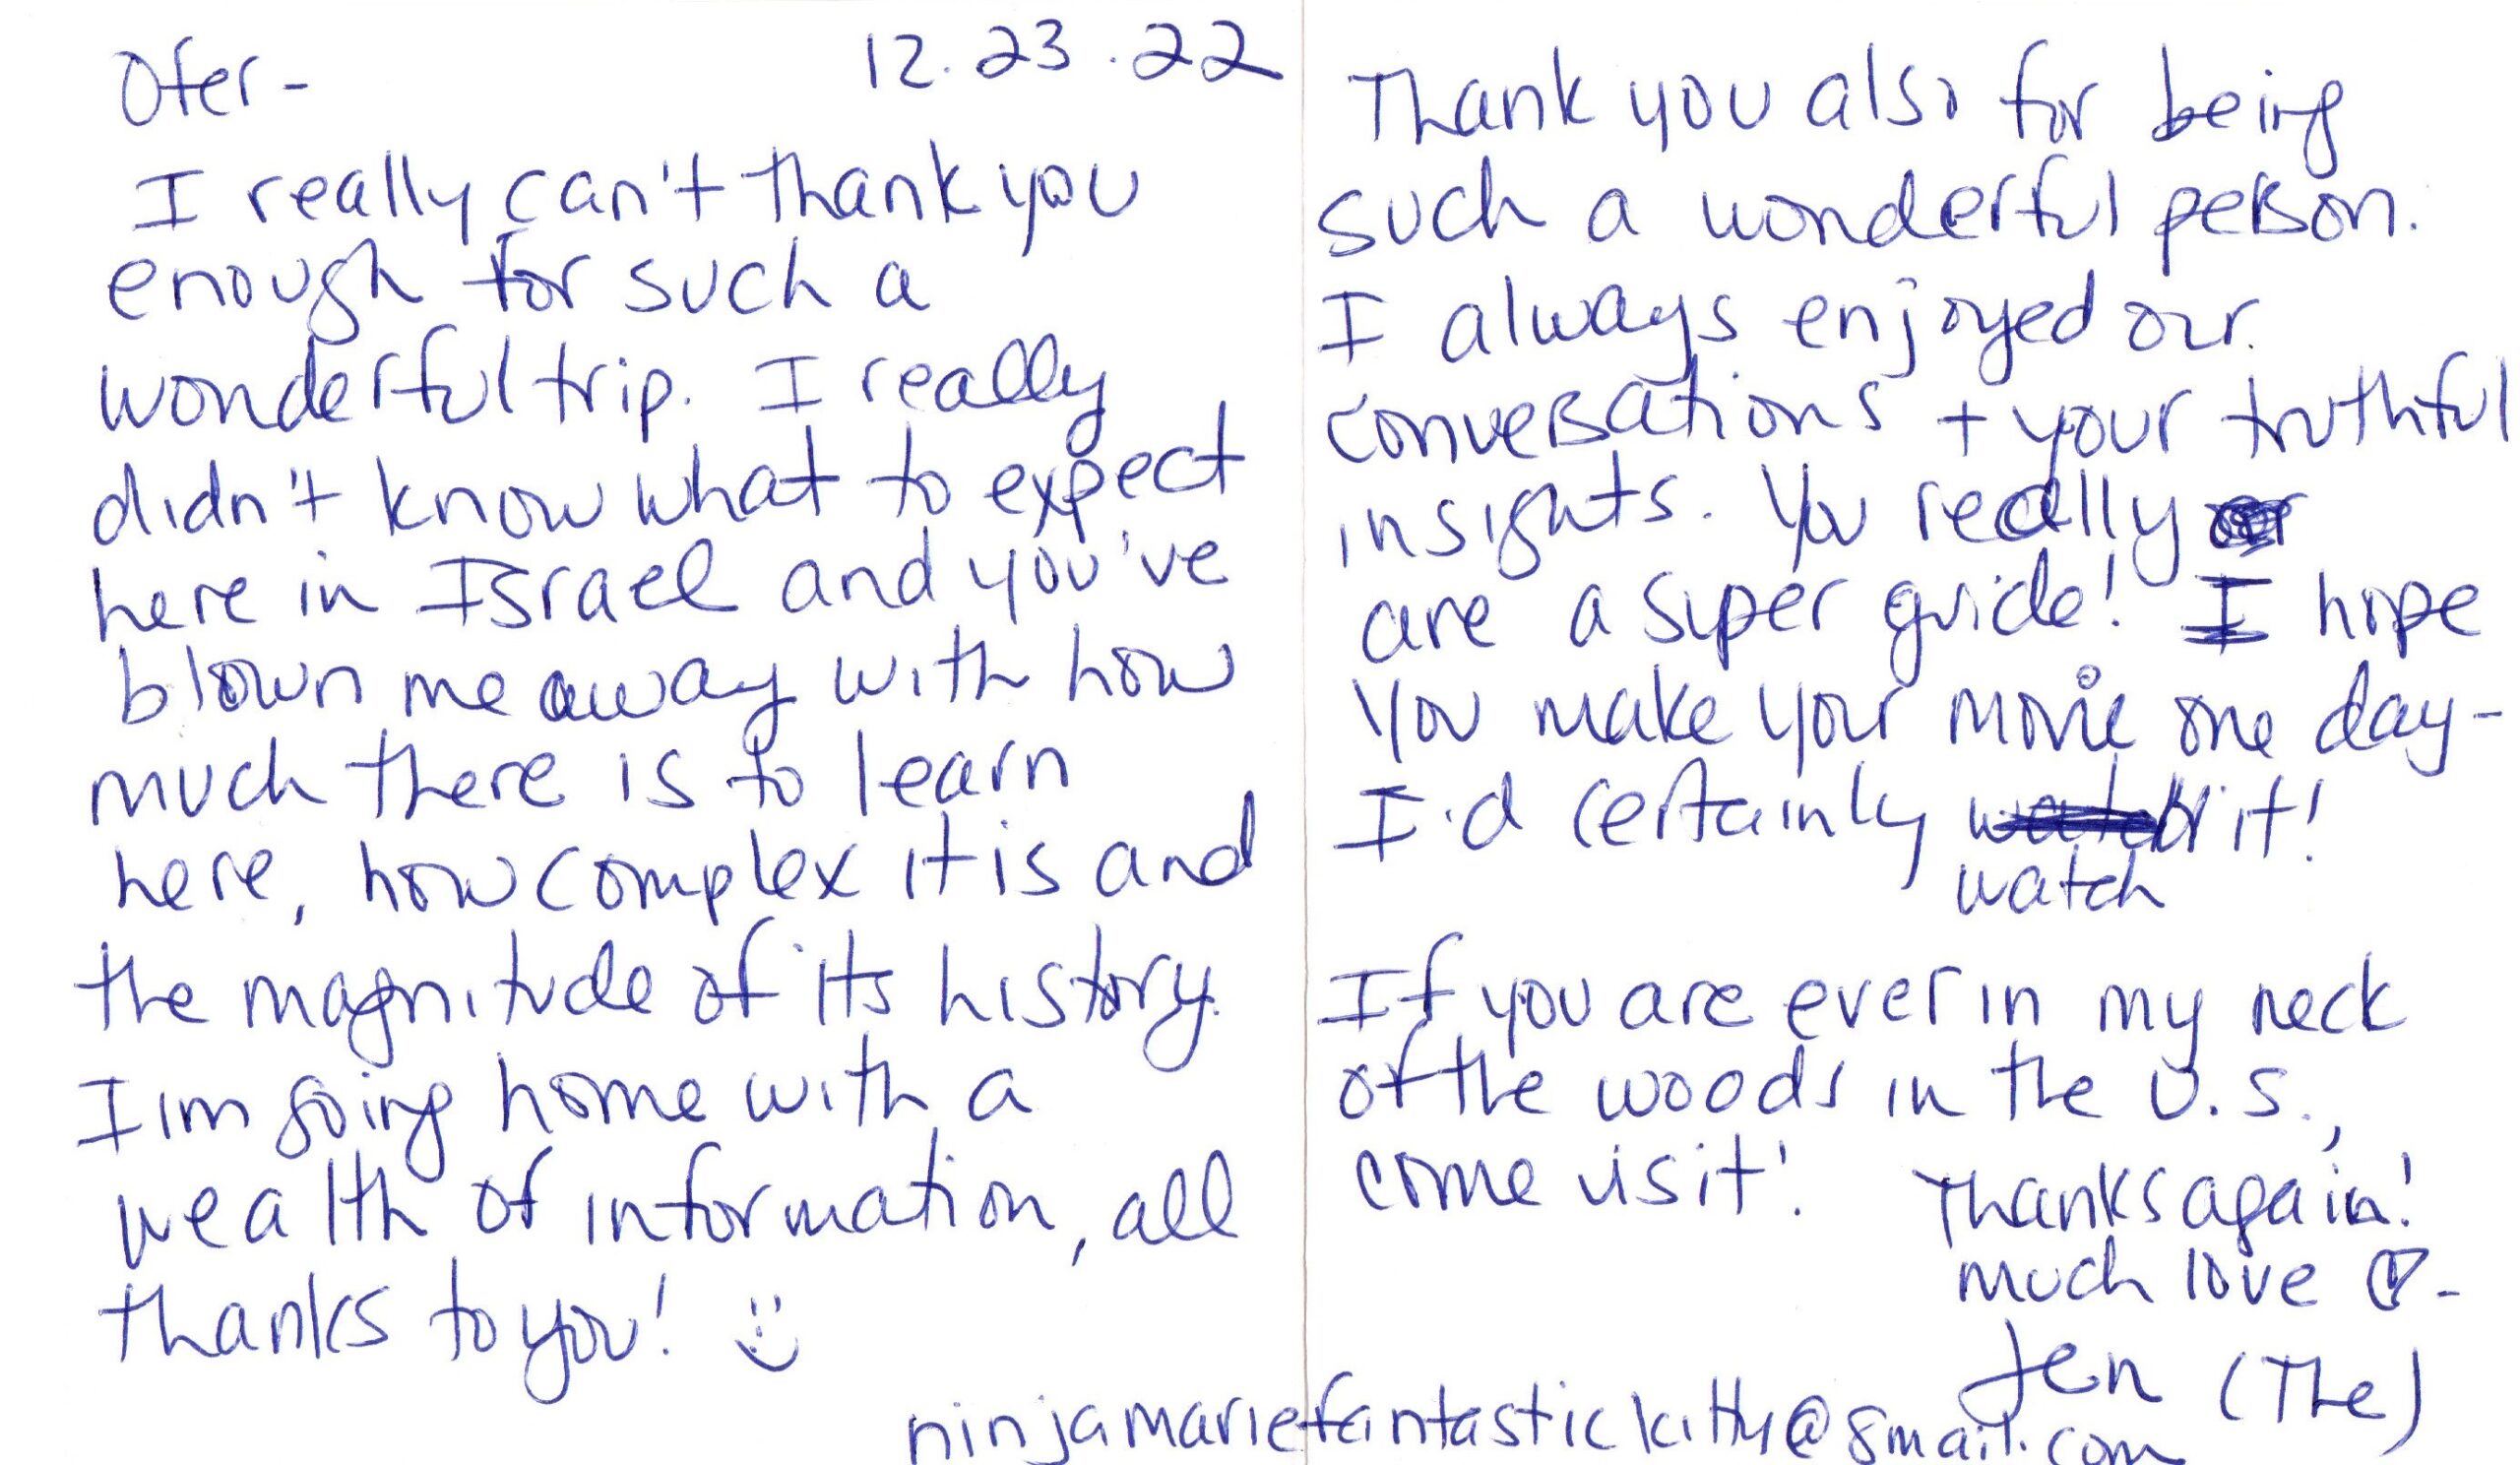 12.23.22
Ofer-
I really can't thank you
enough for such a
wonderful trip. I really
didn't know what to expect
here in Israel and you've
blown me away with how
much there is to learn
here, how complex it is and
the magnitude of its history.
I'm going home with a
wealth of information, all
thanks to you! :)
Thank you also for being
such a wonderful person.
I always enjoyed our
conversations + your truthful
insights. You really
are a super guide! I hope
you make your movie one day-
I'd certainly it!
watch
If you are ever in my neck
of the woods in the U.S.,
come visit!
Thanks again!
much love ♡-
Jen (The)
ninjamariefantastickitty@gmail.com